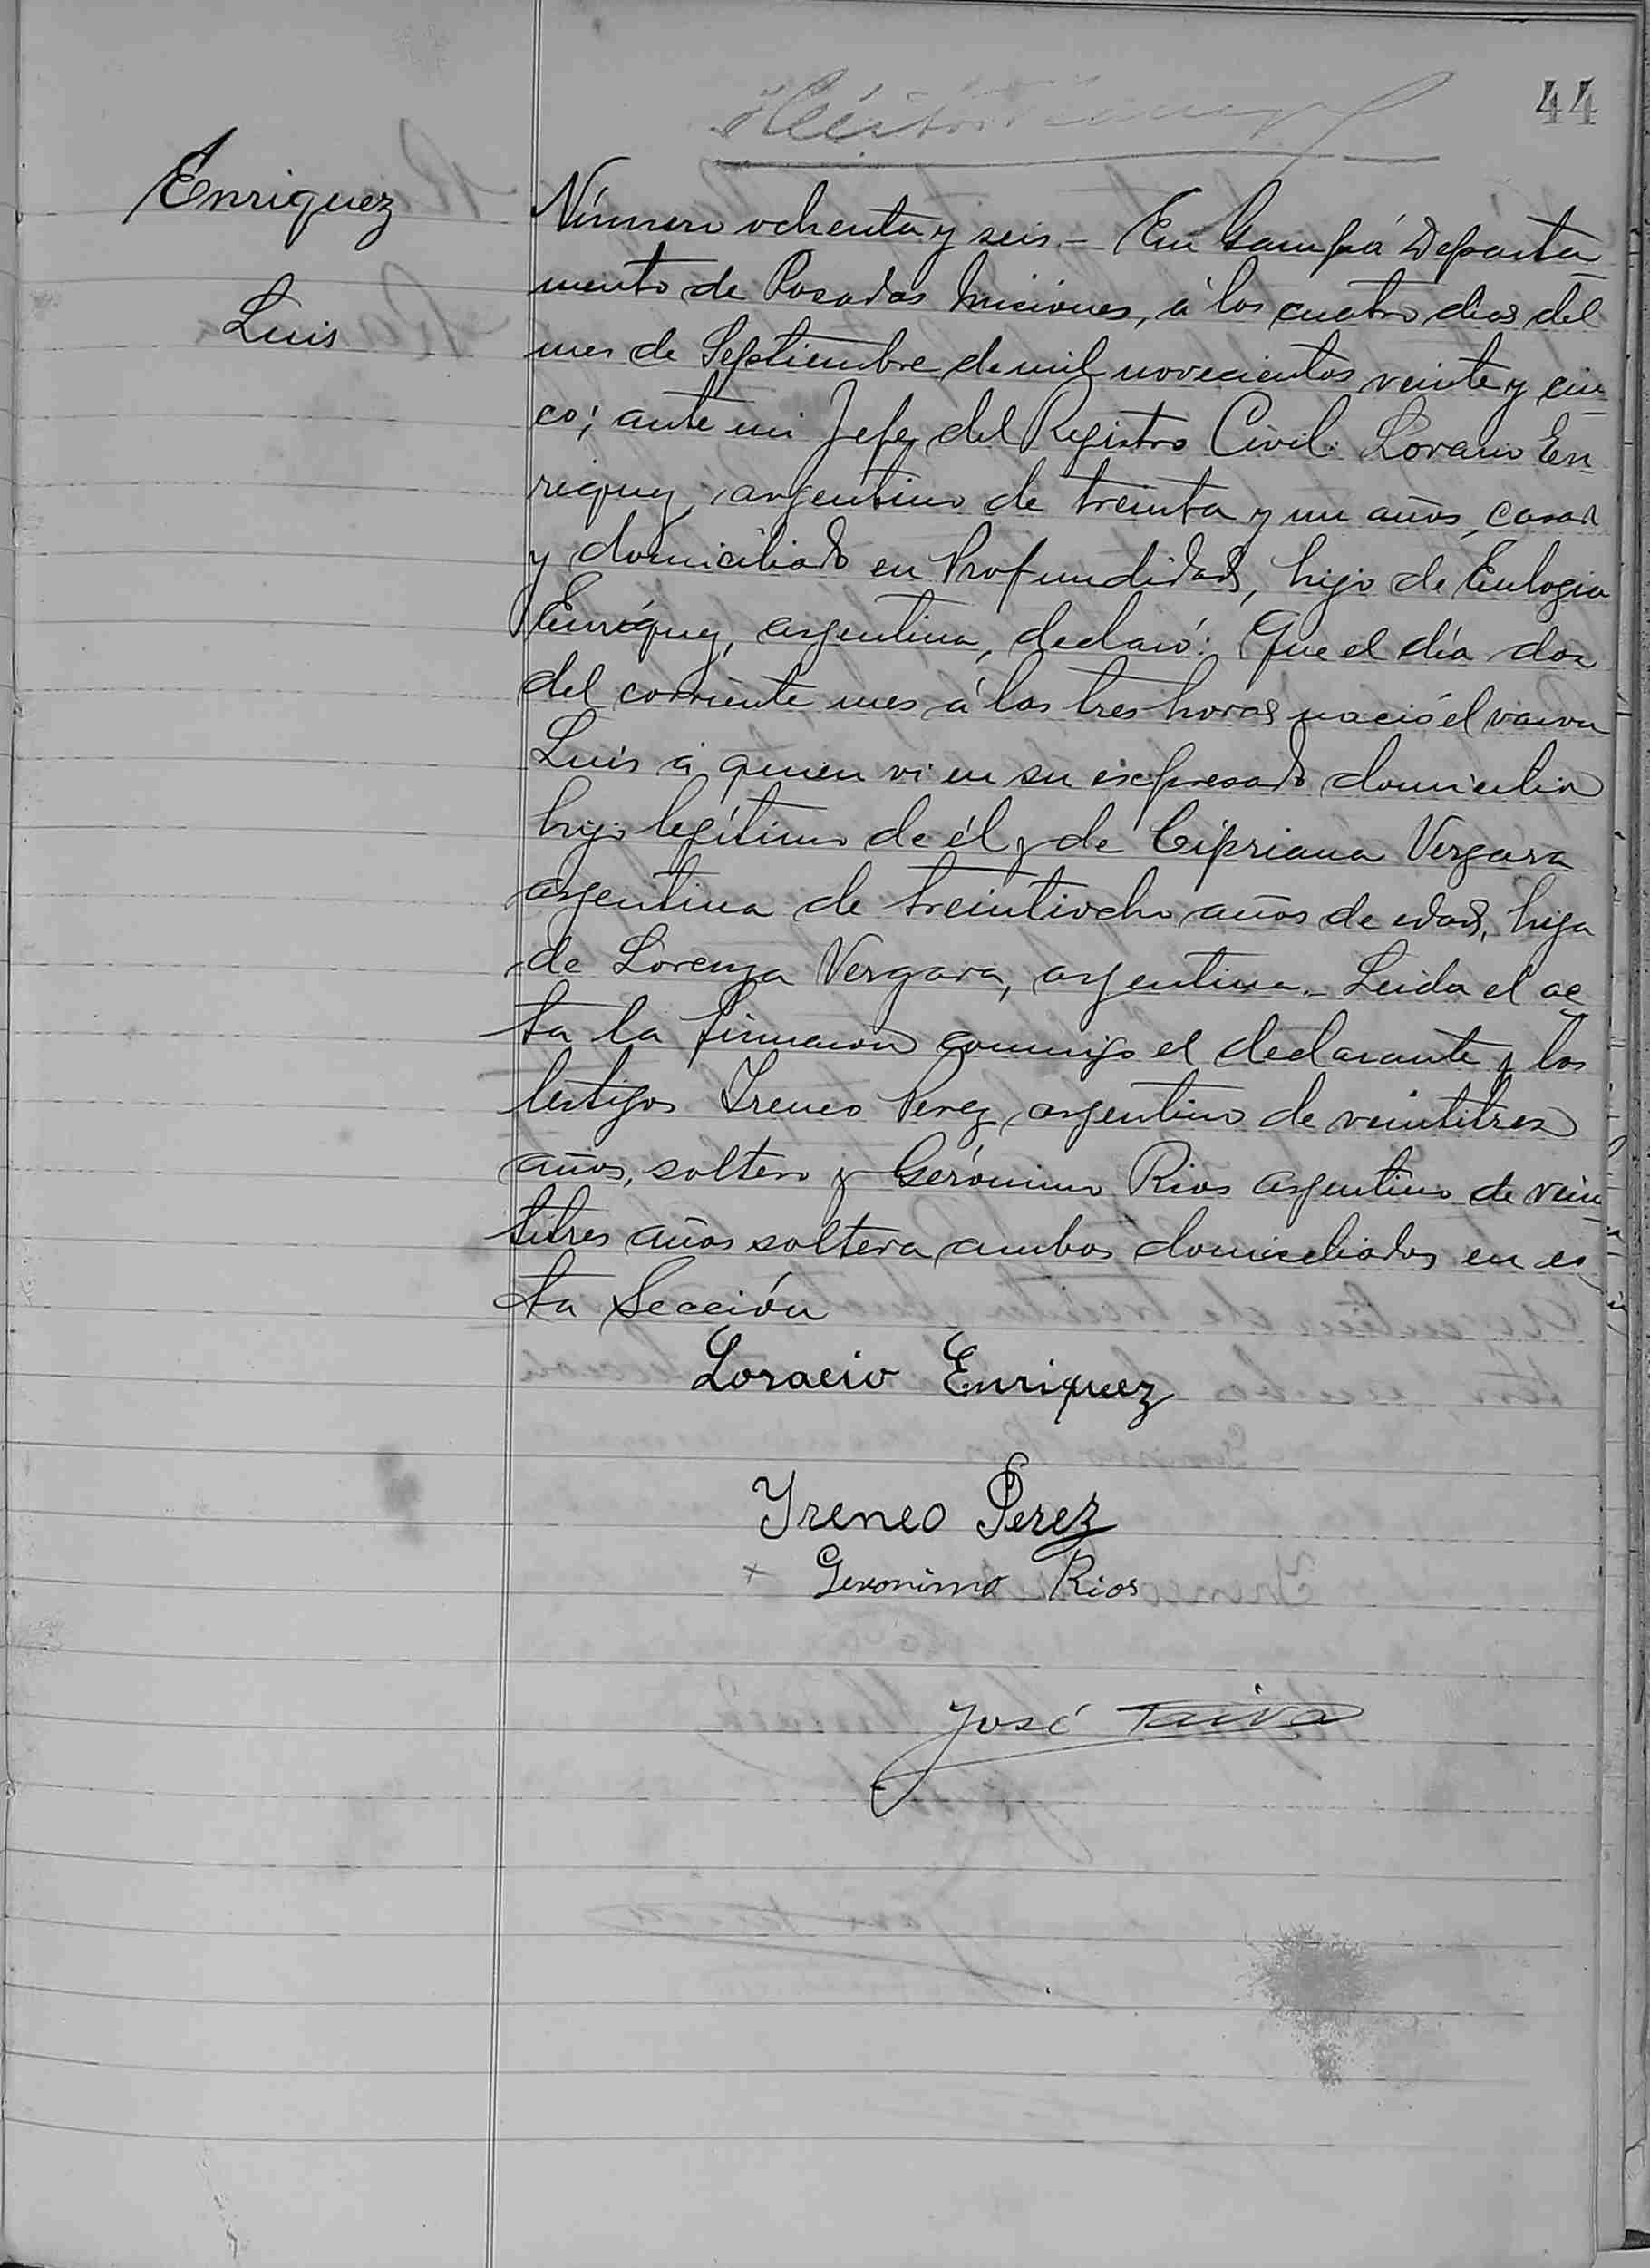 44
Enriquez
Luis
Número ochenta y seis.- En Garupá Departa-
mento de Posadas Misiones, á los cuatro dias del
mes de Septiembre de mil novecientos veinte y cin-
co; ante mi Jefe del Registro Civil: Loracio En-
riquez, argentino de treinta y un años, casado
y domiciliado en Profundidad, hijo de Eulogia
Enriquez, argentina, declaró: Que el día dos
del corriente mes á las tres horas nació el varon
Luis á quien vi en su expresado domicilio
hijo legítimo de él y de Cipriana Vergara
argentina de treintiocho años de edad, hija
de Lorenza Vergara, argentina.- Leida el ac-
ta la firmaron conmigo el declarante y los
testigos Ireneo Perez, argentino de veintitres
años, soltero y Gerónimo Rios argentino de vein-
titres años soltero, ambos domiciliados en es-
ta Sección
Loracio Enriquez
Yreneo Perez
+ Geronimo Rios
José Paiva